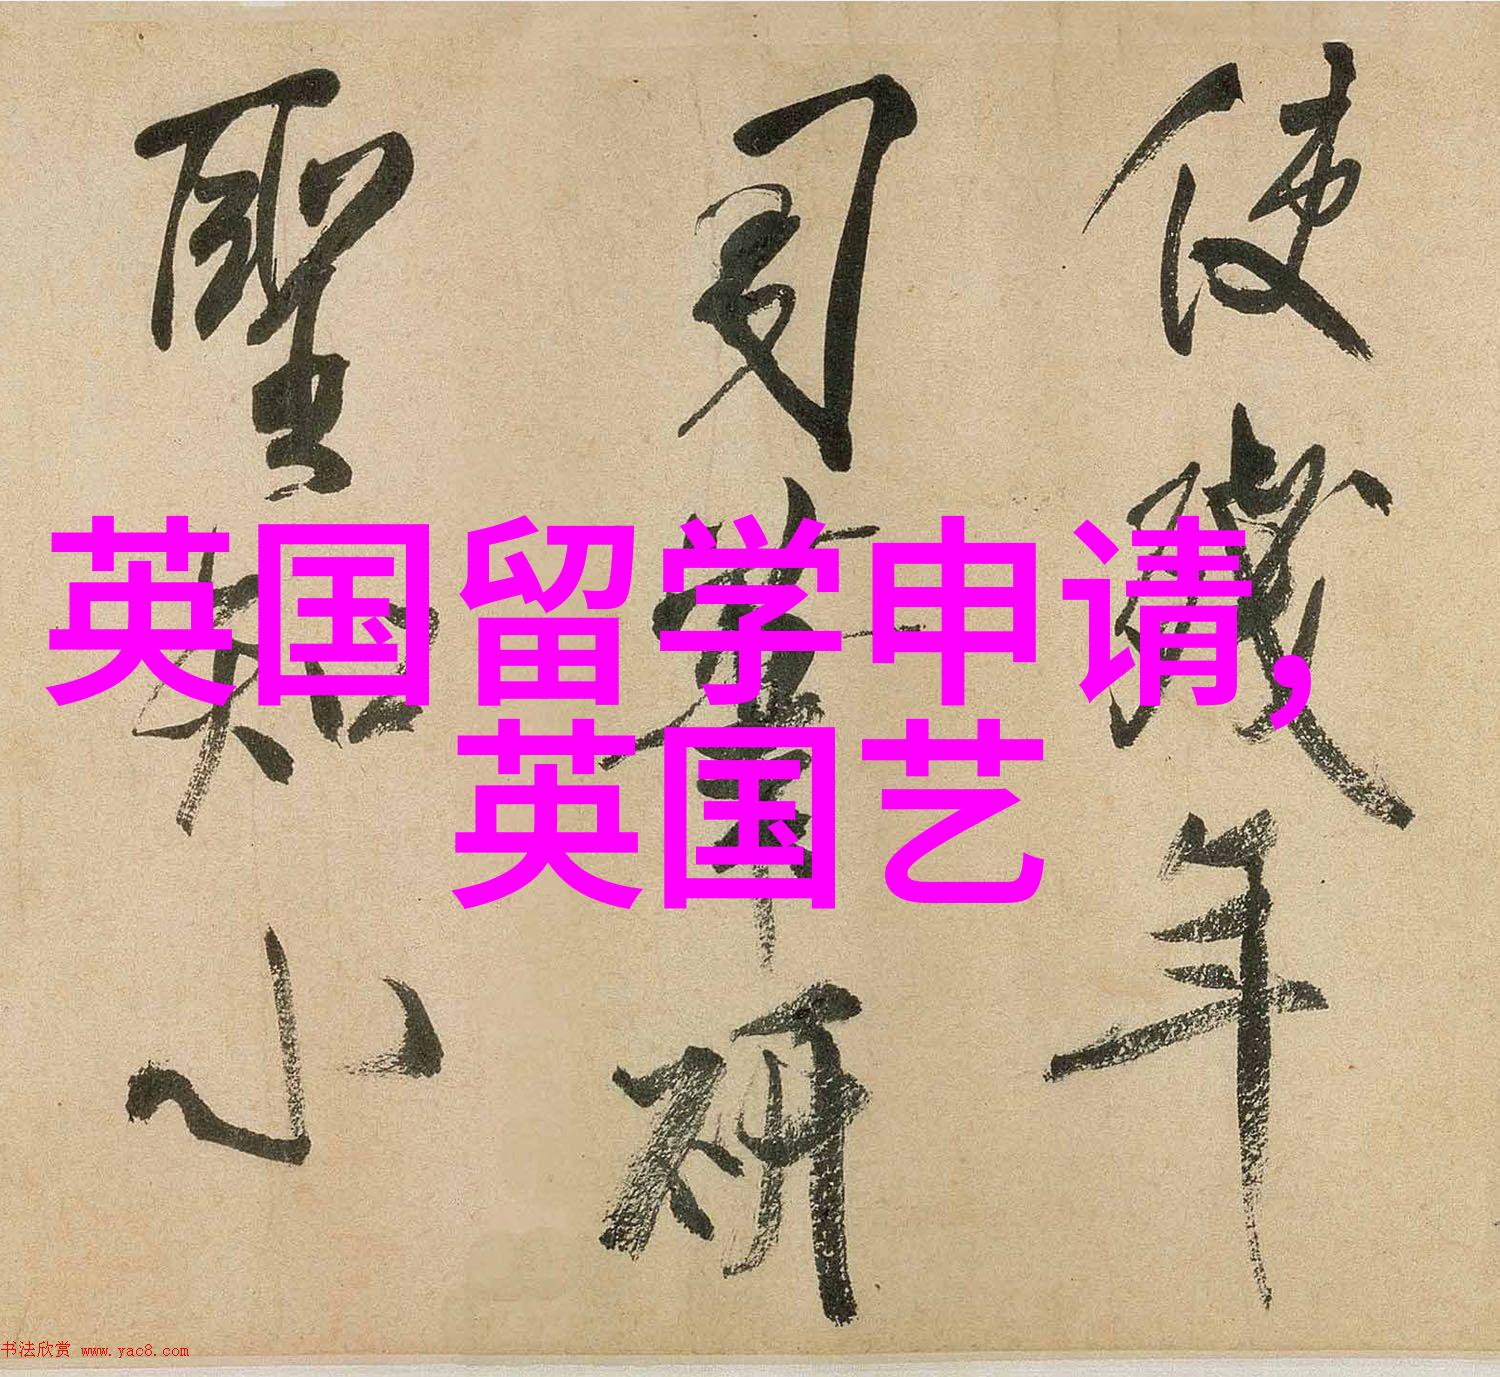 使殘年
司筆研
聖知小
英国留学申请,
英国艺
书法欣赏 www.yac8.com